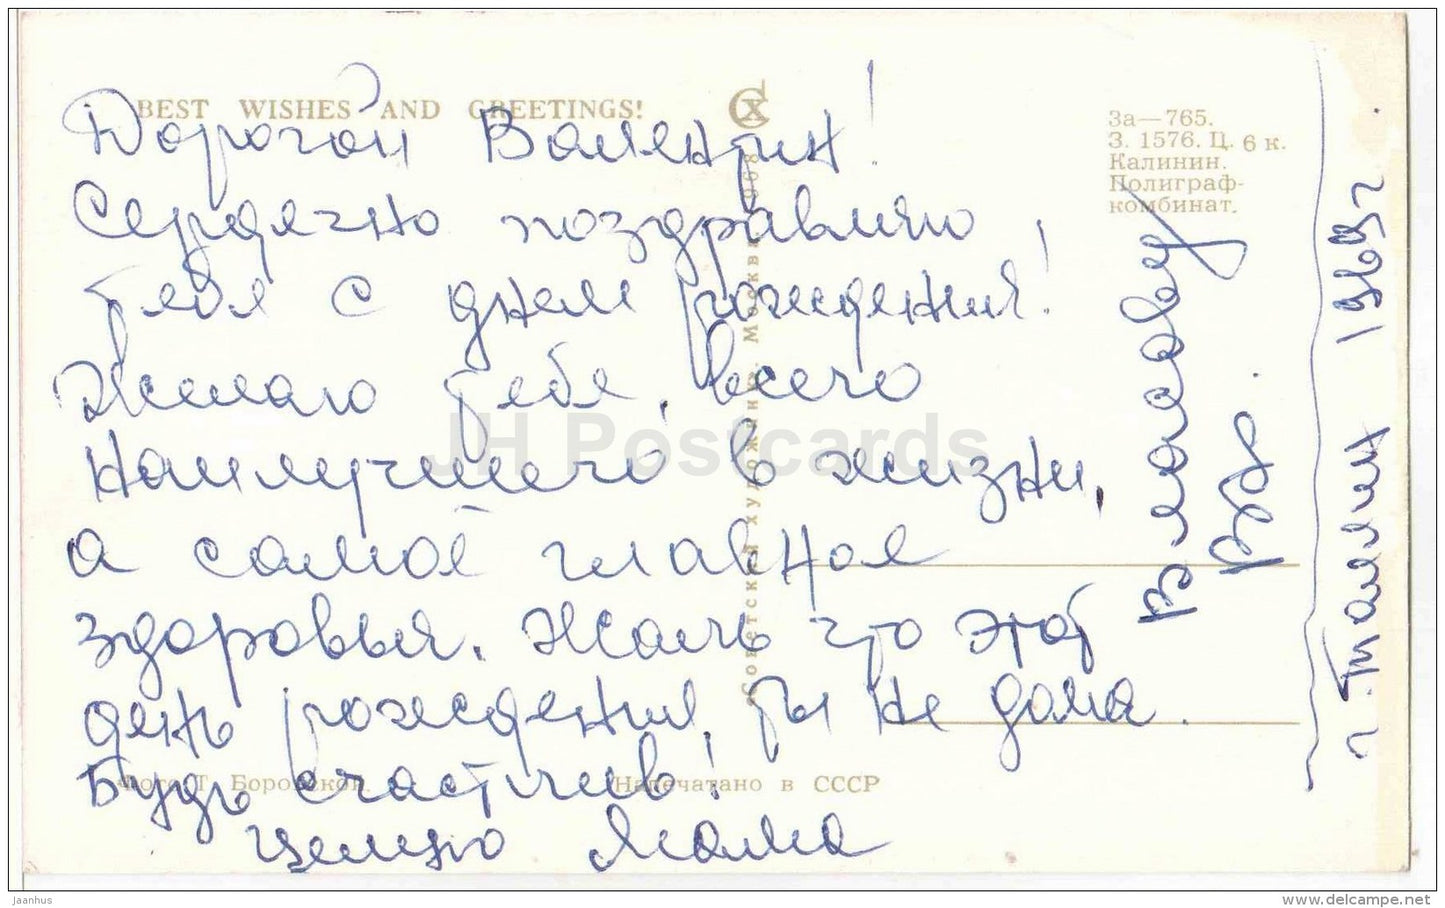 BEST WISHES AND GREETINGS!
Дорогой Валентин!
Сердечно поздравляю
тебя с днем рождения!
Желаю тебе, всего
наилучшего в жизни,
а самое главное
здоровья. Жаль что этот
день рождения, ты не дома.
Будь счастлив!
Целую Мама
За—765.
З. 1576. Ц. 6 к.
Калинин.
Полиграф-
комбинат.
Советский художник. Москва. 1968
Фото Т. Боровской.
Напечатано в СССР
г. Таллин 1969 г.
JH Postcards
jaanhus
www.delcampe.net